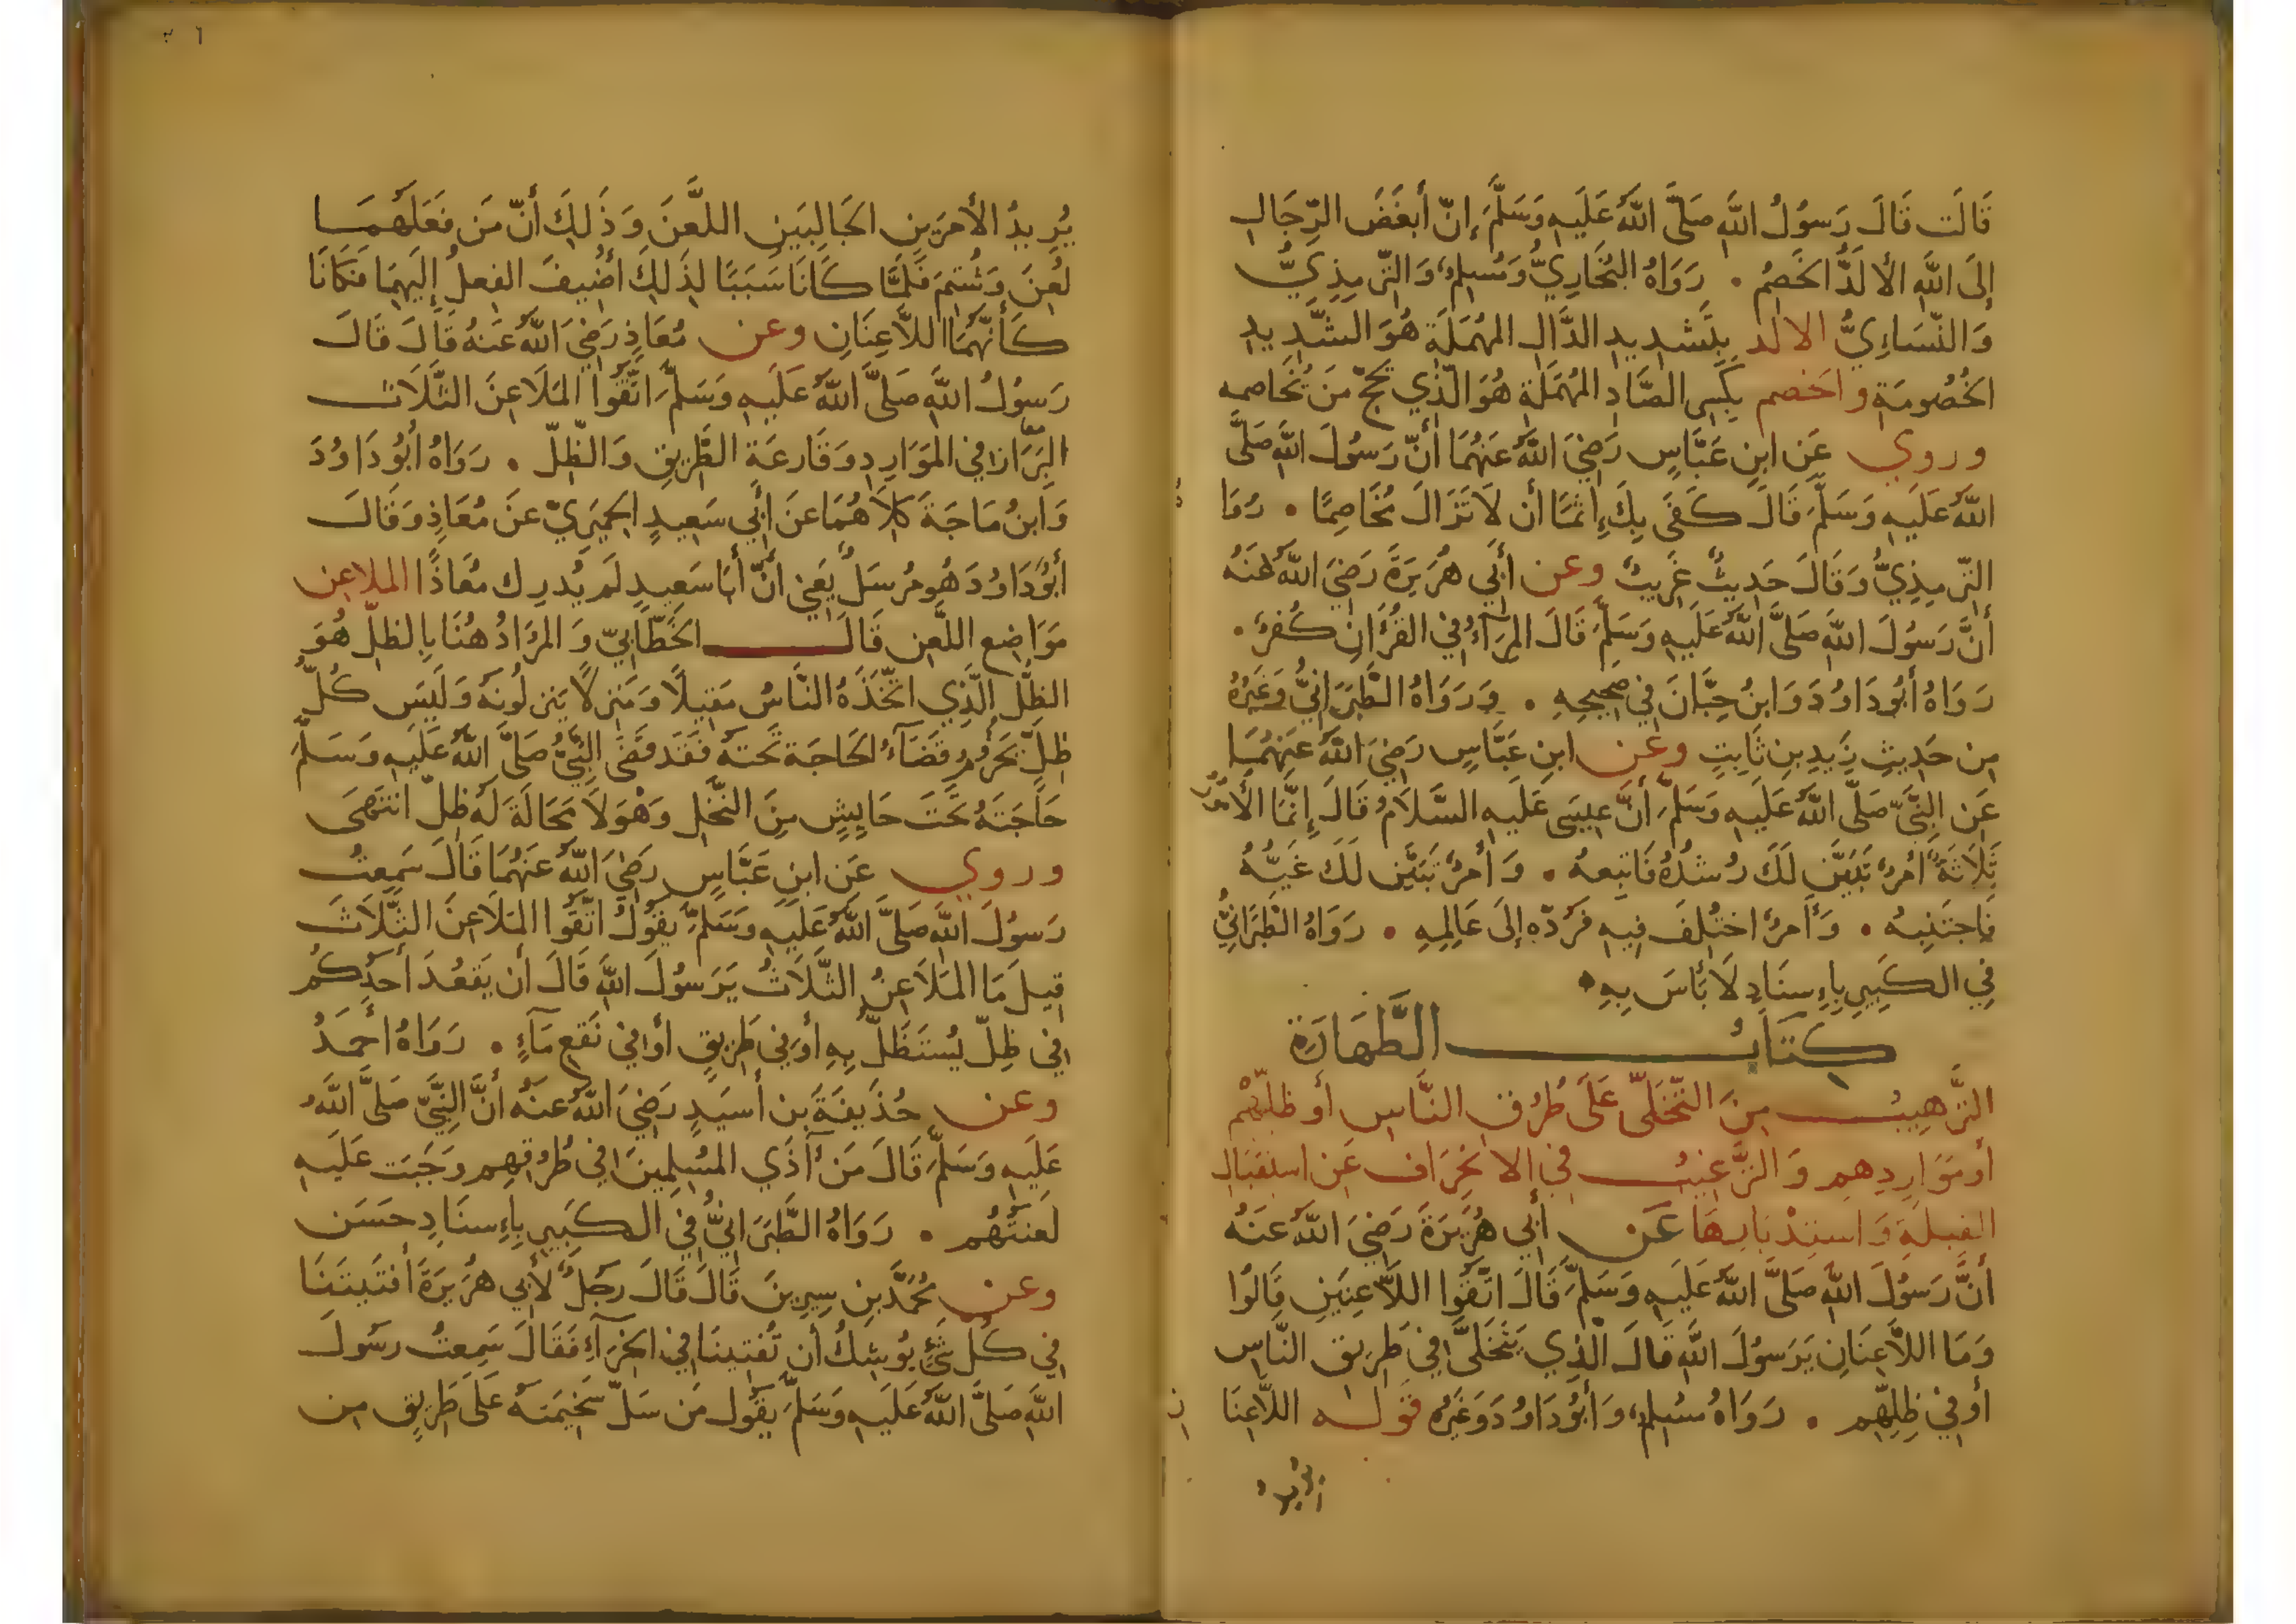 قَالَت قَالَ رَسُولُ اللَّهِ صَلَّى اللَّهُ عَلَيهِ وَسَلَّمَ إِنّ أَبغَضَ الرِّجَالِ
إِلَى اللَّهِ الأَلَدُّ الخَصِمُ . رَوَاهُ البُخَارِيُّ وَمُسلِمٌ وَالتّرمِذِيُّ
وَالنّسَاءِيُّ الالد بِتَشدِيدِ الدَّالِ المُهمَلَةِ هُوَ الشَّدِيدِ
الخُصُومَةِ والخصم بِكَسرِ الصَّادِ المُهمَلَةِ هُوَ الَّذِي يَحُجّ مَن يُخَاصِمه
وروي عَنِ ابنِ عَبَّاسٍ رَضِيَ اللَّهُ عَنهُمَا أَنّ رَسُولَ اللَّهِ صَلَّى
اللَّهُ عَلَيهِ وَسَلَّمَ قَالَ كَفَى بِكَ إِثمًا أَن لَا تَزَالَ مُخَاصِمًا . رَوَاهُ
التّرمِذِيُّ وَقَالَ حَدِيثٌ غَرِيبٌ وعن أَبِي هُرَيرَةَ رَضِيَ اللَّهُ عَنهُ
أَنَّ رَسُولَ اللَّهِ صَلَّى اللَّهُ عَلَيهِ وَسَلَّمَ قَالَ المِرَآءُ فِي القُرءَانِ كُفرٌ .
رَوَاهُ أَبُو دَاوُدَ وَابنُ حِبَّانَ فِي صَحِيحِهِ . وَرَوَاهُ الطَّبَرَانِيُّ وَغَيرُهُ
مِن حَدِيثِ زَيدِ بنِ ثَابِتٍ وعَن ابنِ عَبَّاسٍ رَضِيَ اللَّهُ عَنهُمَا
عَنِ النَّبِيّ صَلَّى اللَّهُ عَلَيهِ وَسَلَّمَ أَنَّ عِيسَى عَلَيهِ السَّلَامُ قَالَ إِنَّمَا الأُمُورُ
ثَلَاثَةٌ أَمرٌ تَبَيَّنَ لَكَ رُشدُهُ فَاتبِعهُ . وَأَمرٌ تَبَيَّنَ لَكَ غَيُّهُ
فَاجتَنِبهُ . وَأَمرٌ اختُلِفَ فِيهِ فَرُدّه إِلَى عَالِمِهِ . رَوَاهُ الطَّبَرَانِيُّ
فِي الكَبِيرِ بِإِسنَادٍ لَا بَأسَ بِهِ
كِتَابُ الطَّهَارَةِ
التَّرهِيبُ مِنَ التَّخَلِّي عَلَى طُرُقِ النَّاسِ أَو ظِلِّهِم
أَو مَوَارِدِهِم وَالتَّرغِيبُ فِي الانحِرَافِ عَن استِقبَالِ
القِبلَةِ وَاستِدبَارِهَا عَن أَبِي هُرَيرَةَ رَضِيَ اللَّهُ عَنهُ
أَنَّ رَسُولَ اللَّهِ صَلَّى اللَّهُ عَلَيهِ وَسَلَّمَ قَالَ اتَّقُوا اللَّاعِنَينِ قَالُوا
وَمَا اللَّاعِنَانِ يَرَسُولَ اللَّهِ قَالَ الَّذِي يَتَخَلَّى فِي طَرِيقِ النَّاسِ
أَو فِي ظِلِّهِم . رَوَاهُ مُسلِمٌ وَأَبُو دَاوُدَ وَغَيرُهُ قَوله اللَّاعِنَان
يُرِيدُ الأَمرَينِ الجَالِبَينِ اللَّعنَ وَذَلِكَ أَنّ مَن فَعَلَهُمَا
لُعِنَ وَشُتِمَ فَلَمَّا كَانَا سَبَبًا لِذَلِكَ أُضِيفَ الفِعلُ إِلَيهِمَا فَكَانَا
كَأَنَّهُمَا اللَّاعِنَانِ وعن مُعَاذٍ رَضِيَ اللَّهُ عَنهُ قَالَ قَالَ
رَسُولُ اللَّهِ صَلَّى اللَّهُ عَلَيهِ وَسَلَّمَ اتَّقُوا المَلَاعِنَ الثَّلَاثَ
البَرَازَ فِي المَوَارِدِ وَقَارِعَةِ الطَّرِيقِ وَالظِّلّ . رَوَاهُ أَبُو دَاوُدَ
وَابنُ مَاجَةَ كِلَاهُمَا عَن أَبِي سَعِيدٍ الحِميَرِيّ عَن مُعَاذٍ وَقَالَ
أَبُو دَاوُدَ هُو مُرسَلٌ يَعنِي أَنَّ أَبَا سَعِيدٍ لَم يُدرِك مُعَاذًا الملاعن
مَوَاضِع اللَّعنِ قَالَ الخَطَّابِيّ وَالمُرَادُ هُنَا بِالظِلّ هُوَ
الظِّلّ الَّذِي اتَّخَذَهُ النَّاسُ مَقِيلًا وَمَنزِلًا يَنزِلُونهُ وَلَيسَ كُلّ
ظِلّ يَحرُمُ قَضَآءُ الحَاجَةِ تَحتَهُ فَقَد قَضَى النَّبِيُّ صَلَّى اللَّهُ عَلَيهِ وَسَلَّمَ
حَاجَتَهُ تَحتَ حَايِشٍ مِنَ النَّخلِ وَهُوَ لَا مَحَالَةَ لَهُ ظِلّ انتَهَى
وروي عَنِ ابنِ عَبَّاسٍ رَضِيَ اللَّهُ عَنهُمَا قَالَ سَمِعتُ
رَسُولَ اللَّهِ صَلَّى اللَّهُ عَلَيهِ وَسَلَّمَ يَقُولُ اتَّقُوا المَلَاعِنَ الثَّلَاثَ
قِيلَ مَا المَلَاعِنُ الثَّلَاثُ يَرَسُولَ اللَّهِ قَالَ أَن يَقعُدَ أَحَدُكُم
فِي ظِلّ يُستَظَلّ بِهِ أَو فِي طَرِيقٍ أَو فِي نَقعِ مَآءٍ . رَوَاهُ أَحمَدُ
وعن حُذَيفَةَ بن أَسَيدٍ رَضِيَ اللَّهُ عَنهُ أَنَّ النَّبِيَّ صَلَّى اللَّهُ
عَلَيهِ وَسَلَّمَ قَالَ مَن ءَآذَي المُسلِمِينَ فِي طُرُقِهِم وَجَبَت عَلَيهِ
لَعنَتُهُم . رَوَاهُ الطَّبَرَانِيُّ فِي الكَبِيرِ بِإِسنَادٍ حَسَن
وعن مُحَمَّدِ بنِ سِيرِينَ قَالَ قَالَ رَجُلٌ لِأَبِي هُرَيرَةَ أَفتَيتَنَا
فِي كُلّ شَيءٍ يُوشِكُ أَن تُفتِينَا فِي الخِرَآءِ فَقَالَ سَمِعتُ رَسُولَ
اللَّهِ صَلَّى اللَّهُ عَلَيهِ وَسَلَّمَ يَقُول مَن سَلّ سَخِيمَتَهُ عَلَى طَرِيقٍ مِن